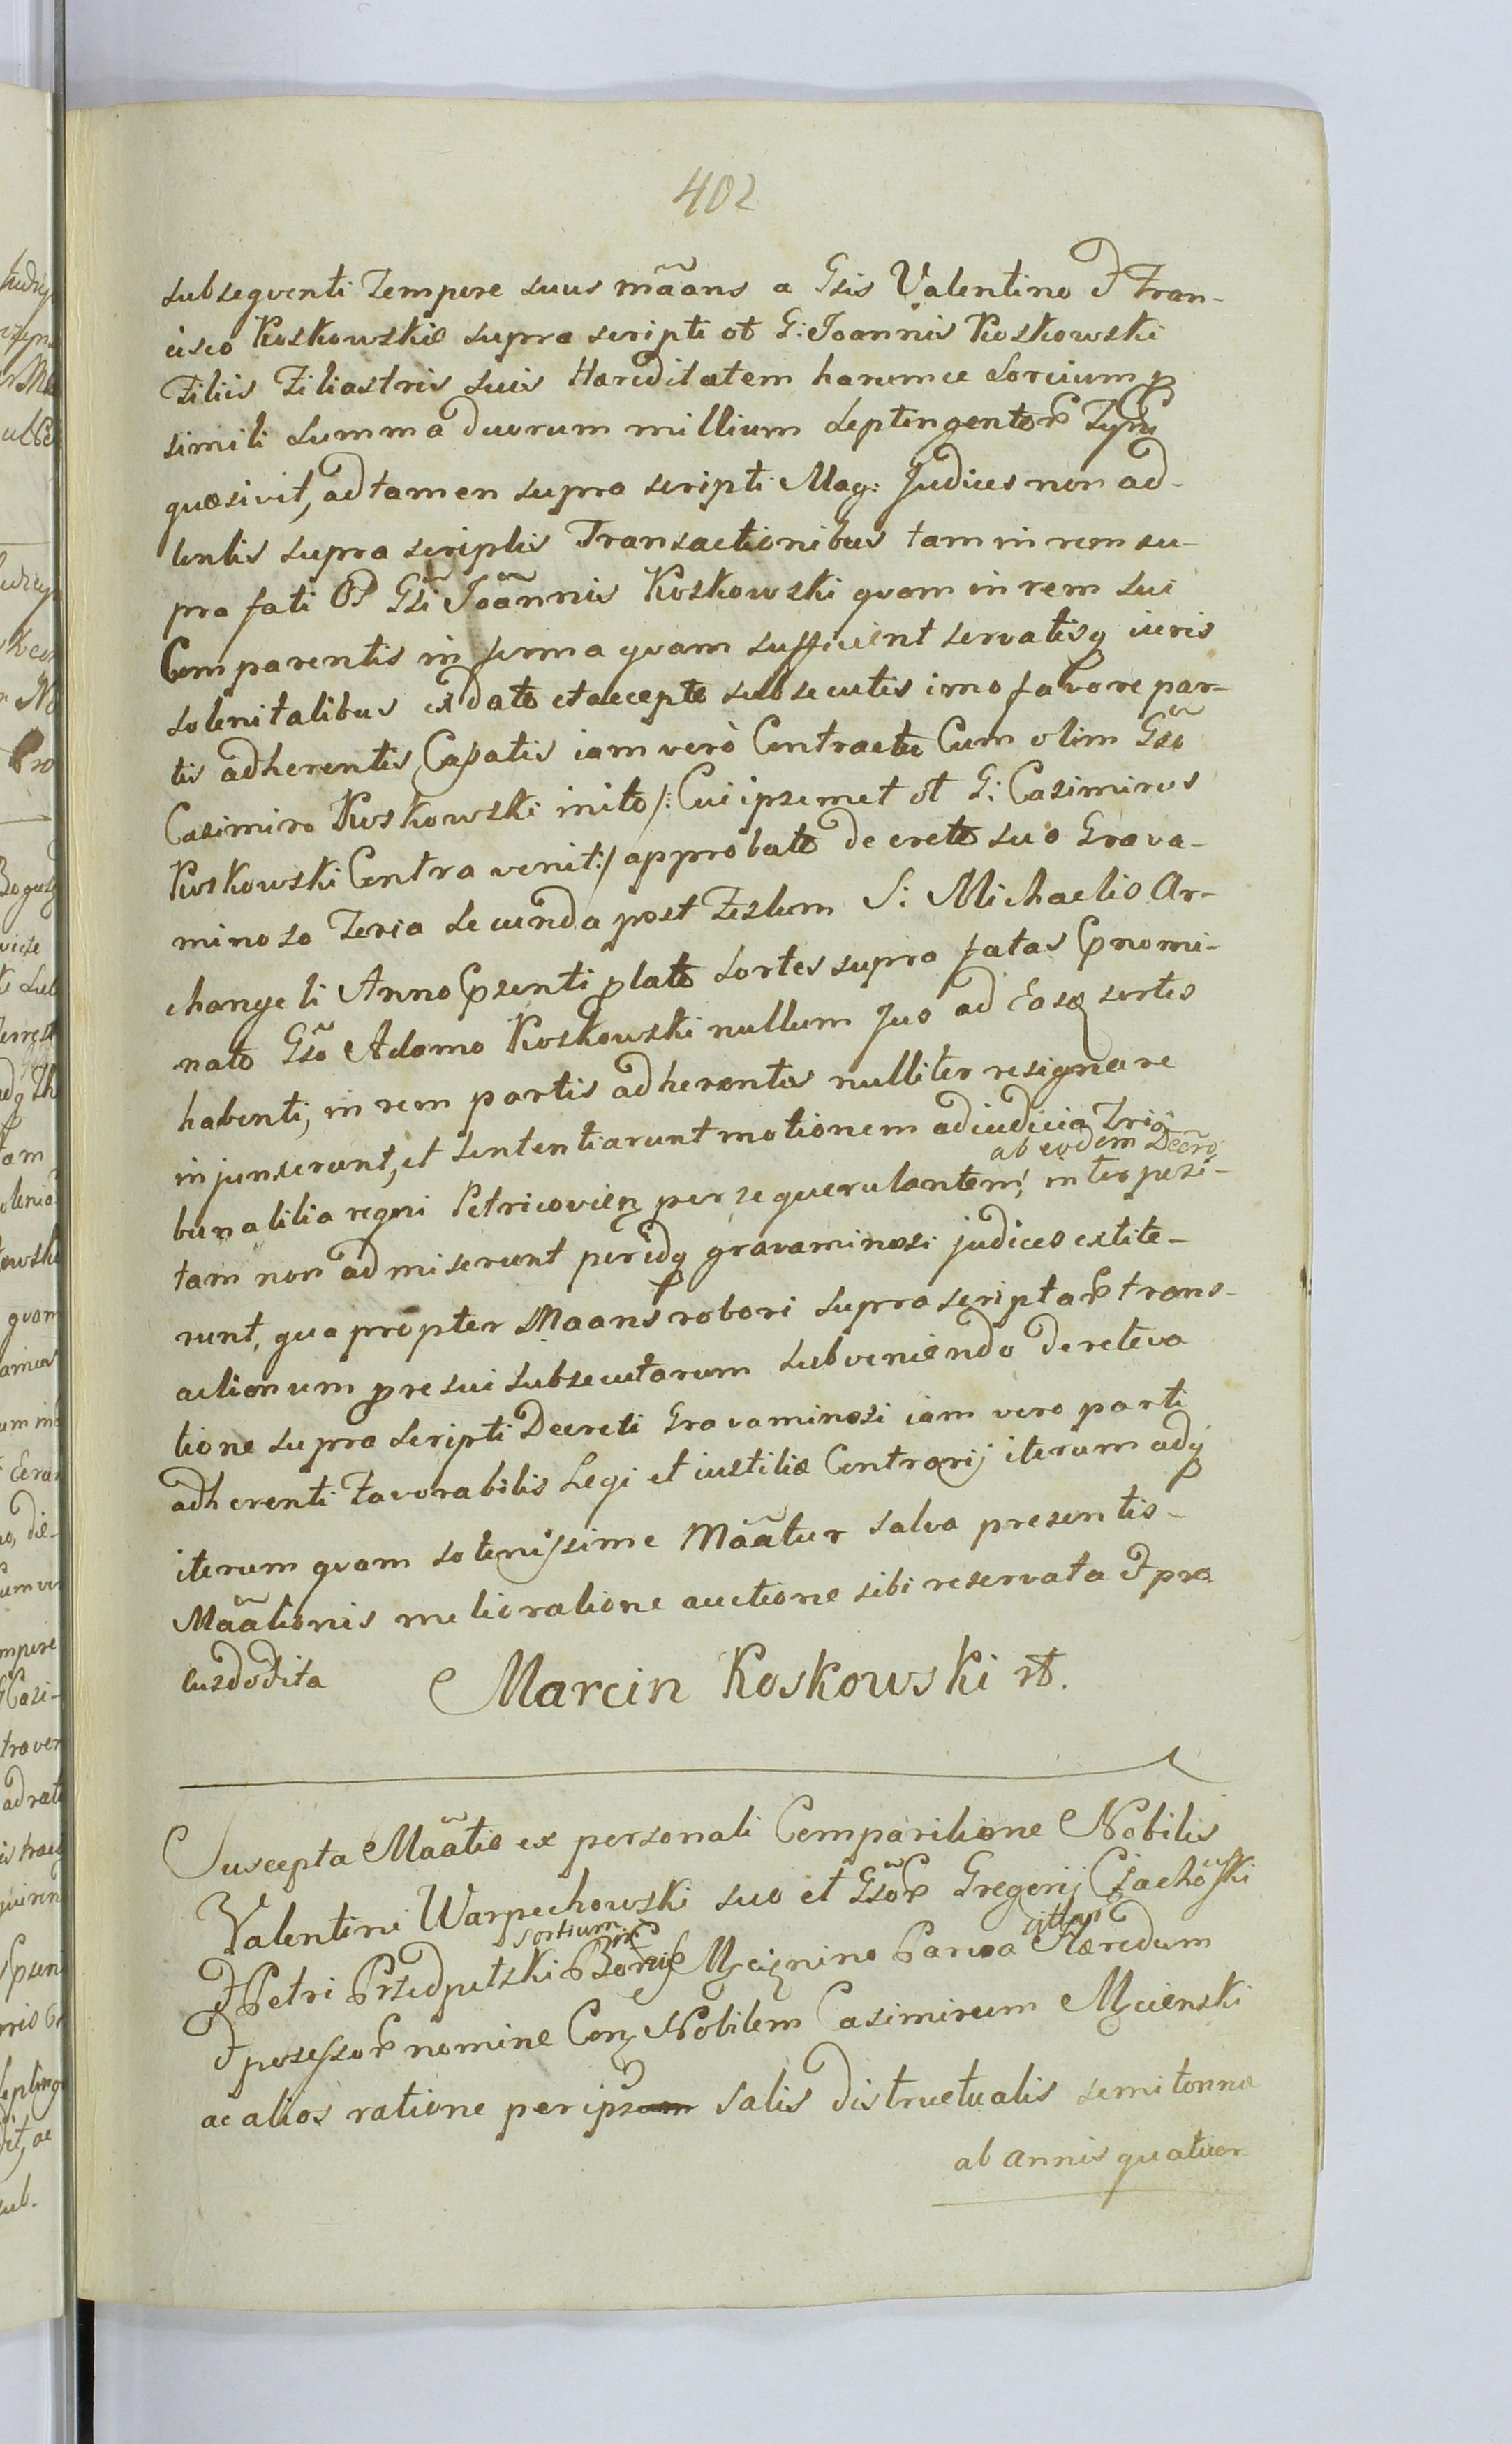 402
subseqventi Tempore suus mãans a Gsis Valentino & Fran-
cisco Koskowskie supra scripti ol G: Joannis Koskowski
Filiis Filiastris suis Hæreditatem harumce Sorcium p
simili Summa duorum millium Septingentor
quæsivit, ad tamen supra scripti Mag: Judices non ad-
tentis supra scriptis Transactionibus tam in rem su-
pra fati Ol Gsi Joannis Koskowski qvam in rem sui
Comparentis in forma qvam sufficient servatisq iuris
solenitatibus ex dato et accepto subsecutis imo favore par-
tis adherentis, Cassatis iam verò Contractu Cum olim Gso
Casimiro Koskowski inito /: Cui ipsemet ol G: Casimirus
Koskowski Contra venit :/ approbato decreto suo Grava-
minoso Feria secunda post Festum S: Michaelis Ar-
changeli Anno psenti plato Sortes supra fatas pnomi-
nato Gso Adamo Koskowski nullum Jus ad Easq sortes
habenti, in rem partis adherentis nulliter resignare
injunxerunt, et Sententiarunt motionem ad iudicia Tri-
ab eodem Decro
bunalitia regni Petricovien per se querulantem interposi-
tam non admiserunt peridq gravaminosi judices extite-
runt, qua propter Maans robori supra scriptar trans-
actionum p re sui subsecutarum subveniendo de reteva
tione supra scripti Decreti Gravaminosi iam vero parti
adherenti Favorabilis Legi et iustitiæ Contrarij iterum adq
iterum qvam solenissime Mãatur salva presentis
Mãationis melioratione auctione sibi reservata & præ
custodita Marcin Koskowski
Suscepta Mãatio ex personali Comparitione Nobilis
Valentini Warpechowski suo et Gsor Gregorij Czachowski
sortium villar
& Petri Przedpełski Mscignino Parva Hæredum
& posessor nomine Con Nobilem Casimirum Mscienski
ac alios ratione per ips salis distructualis semitonnæ
ab annis quatuor